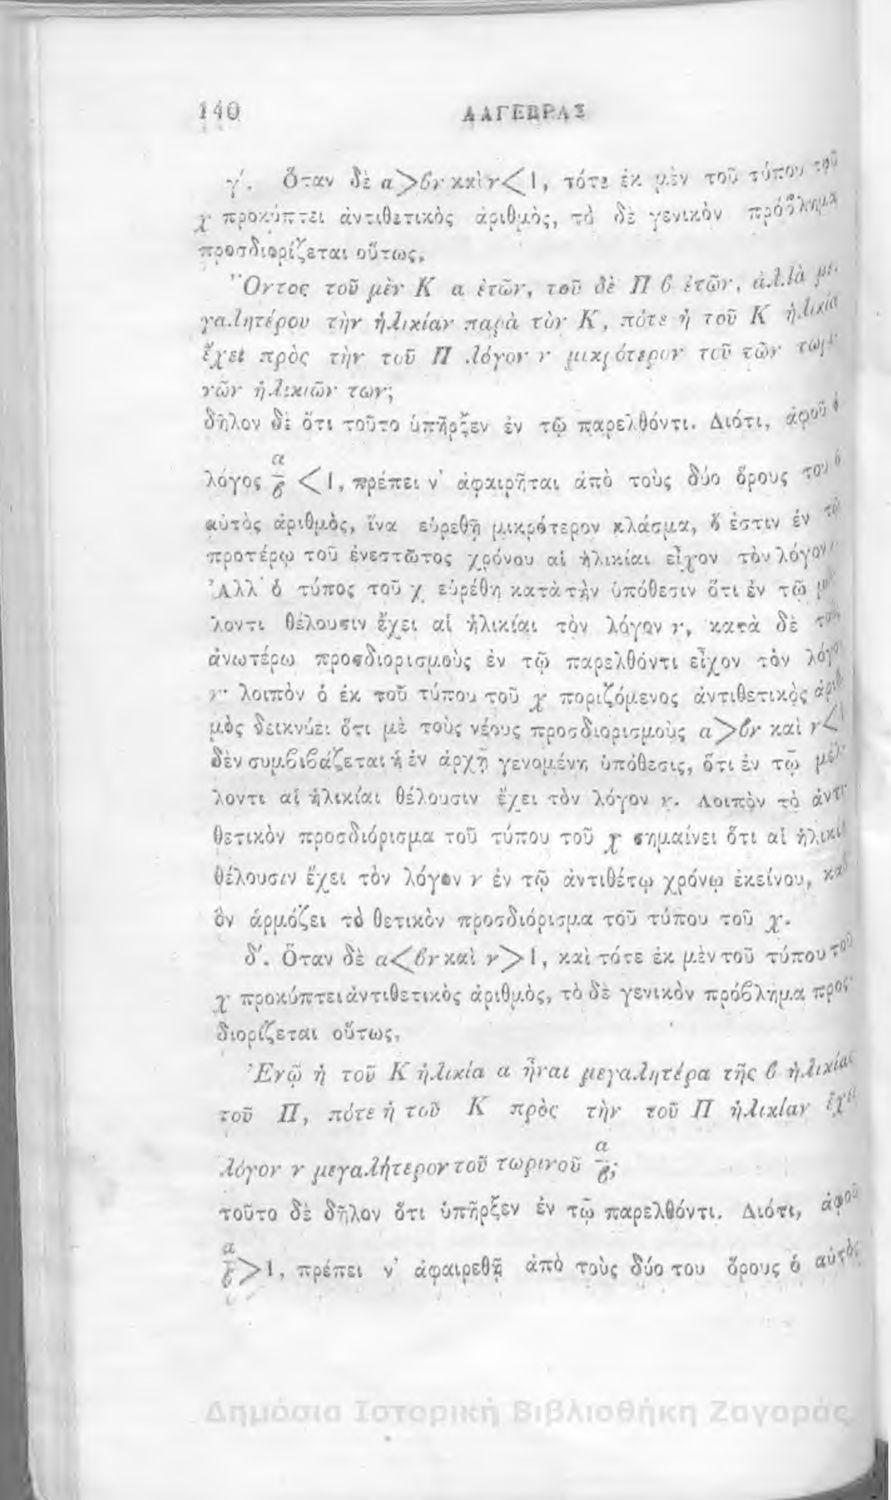 140 ΑΛΓΕΒΡΑΣ
γ'. Ὅταν δὲ α>βν καὶ ν<1, τότε ἐκ μὲν τοῦ τύπου τοῦ
χ προκύπτει ἀντιθετικὸς ἀριθμὸς, τὸ δὲ γενικὸν πρόβλημα
προσδιορίζεται οὕτως,
Ὄντος τοῦ μὲν Κ α ἐτῶν, τοῦ δὲ Π β ἐτῶν, ἀλλὰ με-
γαλητέρου τὴν ἡλικίαν παρὰ τὸν Κ, πότε ἡ τοῦ Κ ἡλικία
ἔχει πρὸς τὴν τοῦ Π λόγον ν μικρότερον τοῦ τῶν τωρι-
νῶν ἡλικιῶν των;
δῆλον δὲ ὅτι τοῦτο ὑπῆρξεν ἐν τῷ παρελθόντι. Διότι, ἀφοῦ ὁ
λόγος α/β <1, πρέπει ν' ἀφαιρῆται ἀπὸ τοὺς δύο ὅρους του ὁ
αὐτὸς ἀριθμὸς, ἵνα εὑρεθῇ μικρότερον κλάσμα, ὅ ἐστιν ἐν τῷ
προτέρῳ τοῦ ἐνεστῶτος χρόνου αἱ ἡλικίαι εἶχον τὸν λόγον
Ἀλλ' ὁ τύπος τοῦ χ εὑρέθη κατὰ τὴν ὑπόθεσιν ὅτι ἐν τῷ μέλ-
λοντι θέλουσιν ἔχει αἱ ἡλικίαι τὸν λόγον ν, κατὰ δὲ τοὺς
ἀνωτέρω προσδιορισμοὺς ἐν τῷ παρελθόντι εἶχον τὸν λόγον
ν· λοιπὸν ὁ ἐκ τοῦ τύπου τοῦ χ ποριζόμενος ἀντιθετικὸς ἀριθ-
μὸς δεικνύει ὅτι μὲ τοὺς νέους προσδιορισμοὺς α>βν καὶ ν<1
δὲν συμβιβάζεται ἡ ἐν ἀρχῇ γενομένη ὑπόθεσις, ὅτι ἐν τῷ μέλ-
λοντι αἱ ἡλικίαι θέλουσιν ἔχει τὸν λόγον ν. Λοιπὸν τὸ ἀντι-
θετικὸν προσδιόρισμα τοῦ τύπου τοῦ χ σημαίνει ὅτι αἱ ἡλικίαι
θέλουσιν ἔχει τὸν λόγον ν ἐν τῷ ἀντιθέτῳ χρόνῳ ἐκείνου, καθ'
ὃν ἁρμόζει τὸ θετικὸν προσδιόρισμα τοῦ τύπου τοῦ χ.
δ'. Ὅταν δὲ α<βν καὶ ν>1, καὶ τότε ἐκ μὲν τοῦ τύπου τοῦ
χ προκύπτει ἀντιθετικὸς ἀριθμὸς, τὸ δὲ γενικὸν πρόβλημα προς-
διορίζεται οὕτως,
Ἐνῷ ἡ τοῦ Κ ἡλικία α ἦναι μεγαλητέρα τῆς β ἡλικίας
τοῦ Π, πότε ἡ τοῦ Κ πρὸς τὴν τοῦ Π ἡλικίαν ἔχει
λόγον ν μεγαλήτερον τοῦ τωρινοῦ α/β;
τοῦτο δὲ δῆλον ὅτι ὑπῆρξεν ἐν τῷ παρελθόντι. Διότι, ἀφοῦ
α/β>1, πρέπει ν' ἀφαιρεθῇ ἀπὸ τοὺς δύο του ὅρους ὁ αὐτὸς
Δημόσια Ιστορική Βιβλιοθήκη Ζαγοράς